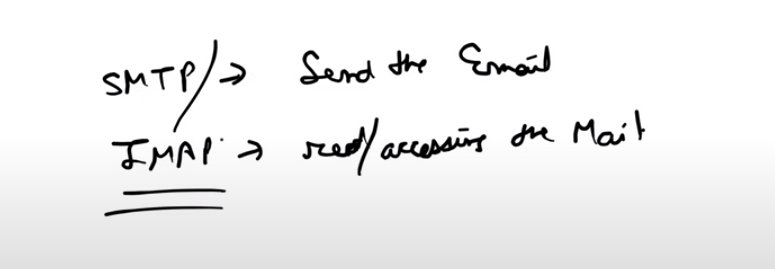 SMTP/→ Send the Email
IMAP → read/accessing the Mail